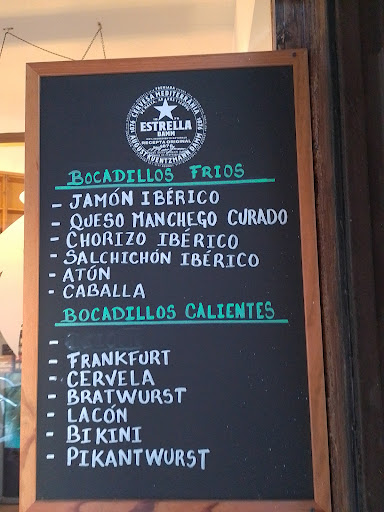 CERVESA MEDITERRÀNIA
ESTRELLA
DAMM
RECEPTA ORIGINAL
AUGUST KUENTZMANN DAMM
BOCADILLOS FRIOS
- JAMÓN IBÉRICO
- QUESO MANCHEGO CURADO
- CHORIZO IBÉRICO
- SALCHICHÓN IBÉRICO
- ATÚN
- CABALLA
BOCADILLOS CALIENTES
-
- FRANKFURT
- CERVELA
- BRATWURST
- LACÓN
- BIKINI
- PIKANTWURST